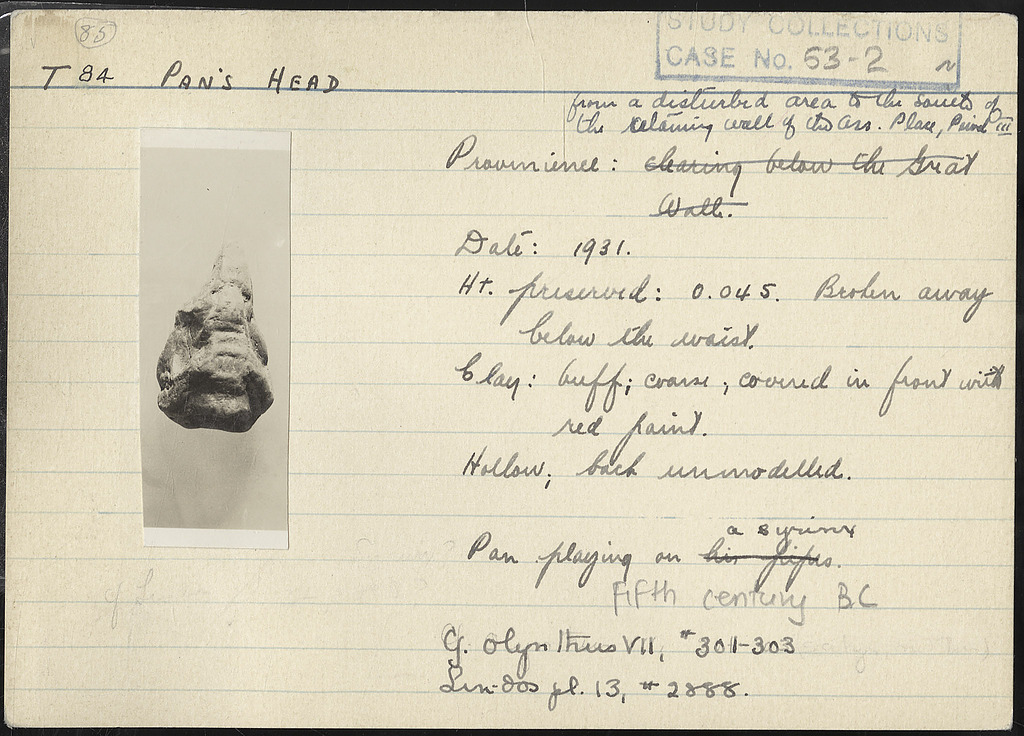 85
STUDY COLLECTIONS
CASE No. 53-2 N
T 84 PAN'S HEAD
from a disturbed area to the south of
the retaining wall of the Ass. Place, Period III
Provinience: clearing below the Great
Wall.
Date: 1931.
Ht. preserved: 0.045. Broken away
below the waist.
Clay: buff; coarse; covered in front with
red paint.
Hollow; back unmodelled.
a syrinx
Pan playing on his pipes.
Fifth century BC
Cf. Olynthus VII, #301-303
Lindos pl. 13, #2888.